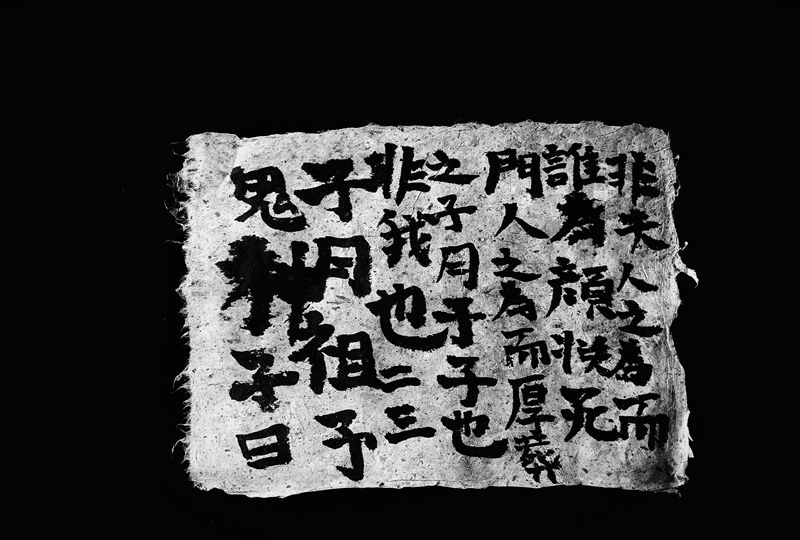 非夫人之為而
誰為顏死
門人之為而厚葬
之子月子也
非我也二三
子月祖予
鬼子曰